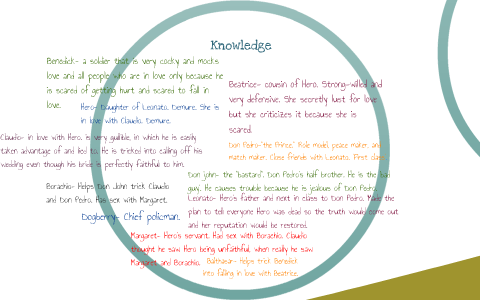 Knowledge
Benedick- a soldier that is very cocky and mocks
love and all people who are in love only because he
is scared of getting hurt and scared to fall in
love.
Beatrice- cousin of Hero. Strong-willed and
very defensive. She secretly lust for love
but she criticizes it because she is
scared.
Hero- Daughter of Leonato. Demure. She is
in love with Claudio. Demure.
Claudio- in love with Hero. is very gullible, in which he is easily
taken advantage of and lied to. He is tricked into calling off his
wedding even though his bride is perfectly faithful to him.
Don Pedro-"the prince." Role model, peace maker, and
match maker. Close friends with Leonato. First class.
Don john- the "bastard". Don Pedro's half brother. He is the bad
guy. He causes trouble because he is jealous of Don Pedro.
Borachio- Helps Don John trick Claudio
and Don Pedro. Has sex with Margaret.
Leonato- Hero's father and next in class to Don Pedro. Made the
plan to tell everyone Hero was dead so the truth would come out
and her reputation would be restored.
Dogberry- Chief policman.
Margaret- Hero's servant. Had sex with Borachio. Claudio
thought he saw Hero being unfaithful when really he saw
Margaret and Borachio.
Balthasar- Helps trick Benedick
into falling in love with Beatrice.